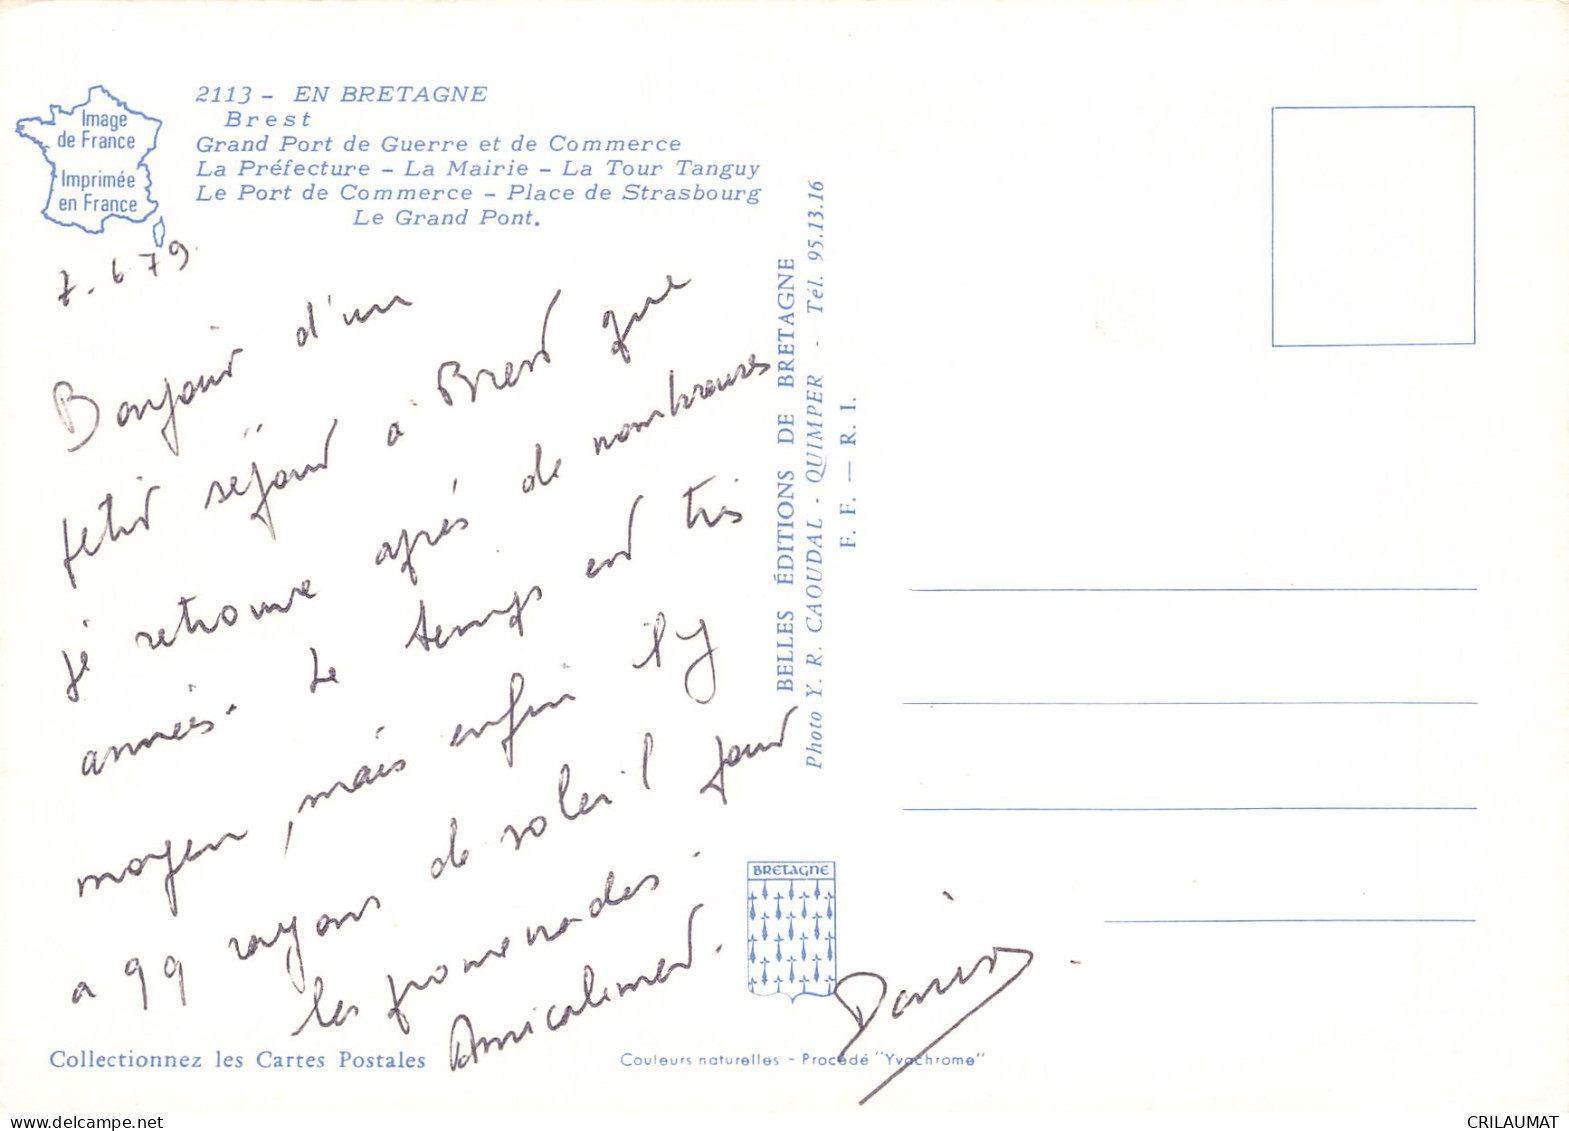 Image
de France
Imprimée
en France
2113 - EN BRETAGNE
Brest
Grand Port de Guerre et de Commerce
La Préfecture - La Mairie - La Tour Tanguy
Le Port de Commerce - Place de Strasbourg
Le Grand Pont.
7.6.79.
Bonjour d'un
petit séjour à Brest que
je retrouve après de nombreuses
années. Le temps est très
moyen, mais enfin il y
a qq rayons de soleil pour
les promenades.
Amicalement.
BELLES ÉDITIONS DE BRETAGNE
Photo Y. R. CAOUDAL - QUIMPER - Tél. 95.13.16
F. F. — R. I.
BRETAGNE
Collectionnez les Cartes Postales
Couleurs naturelles - Procédé "Yvachrome"
delcampe.net
CRILAUMAT